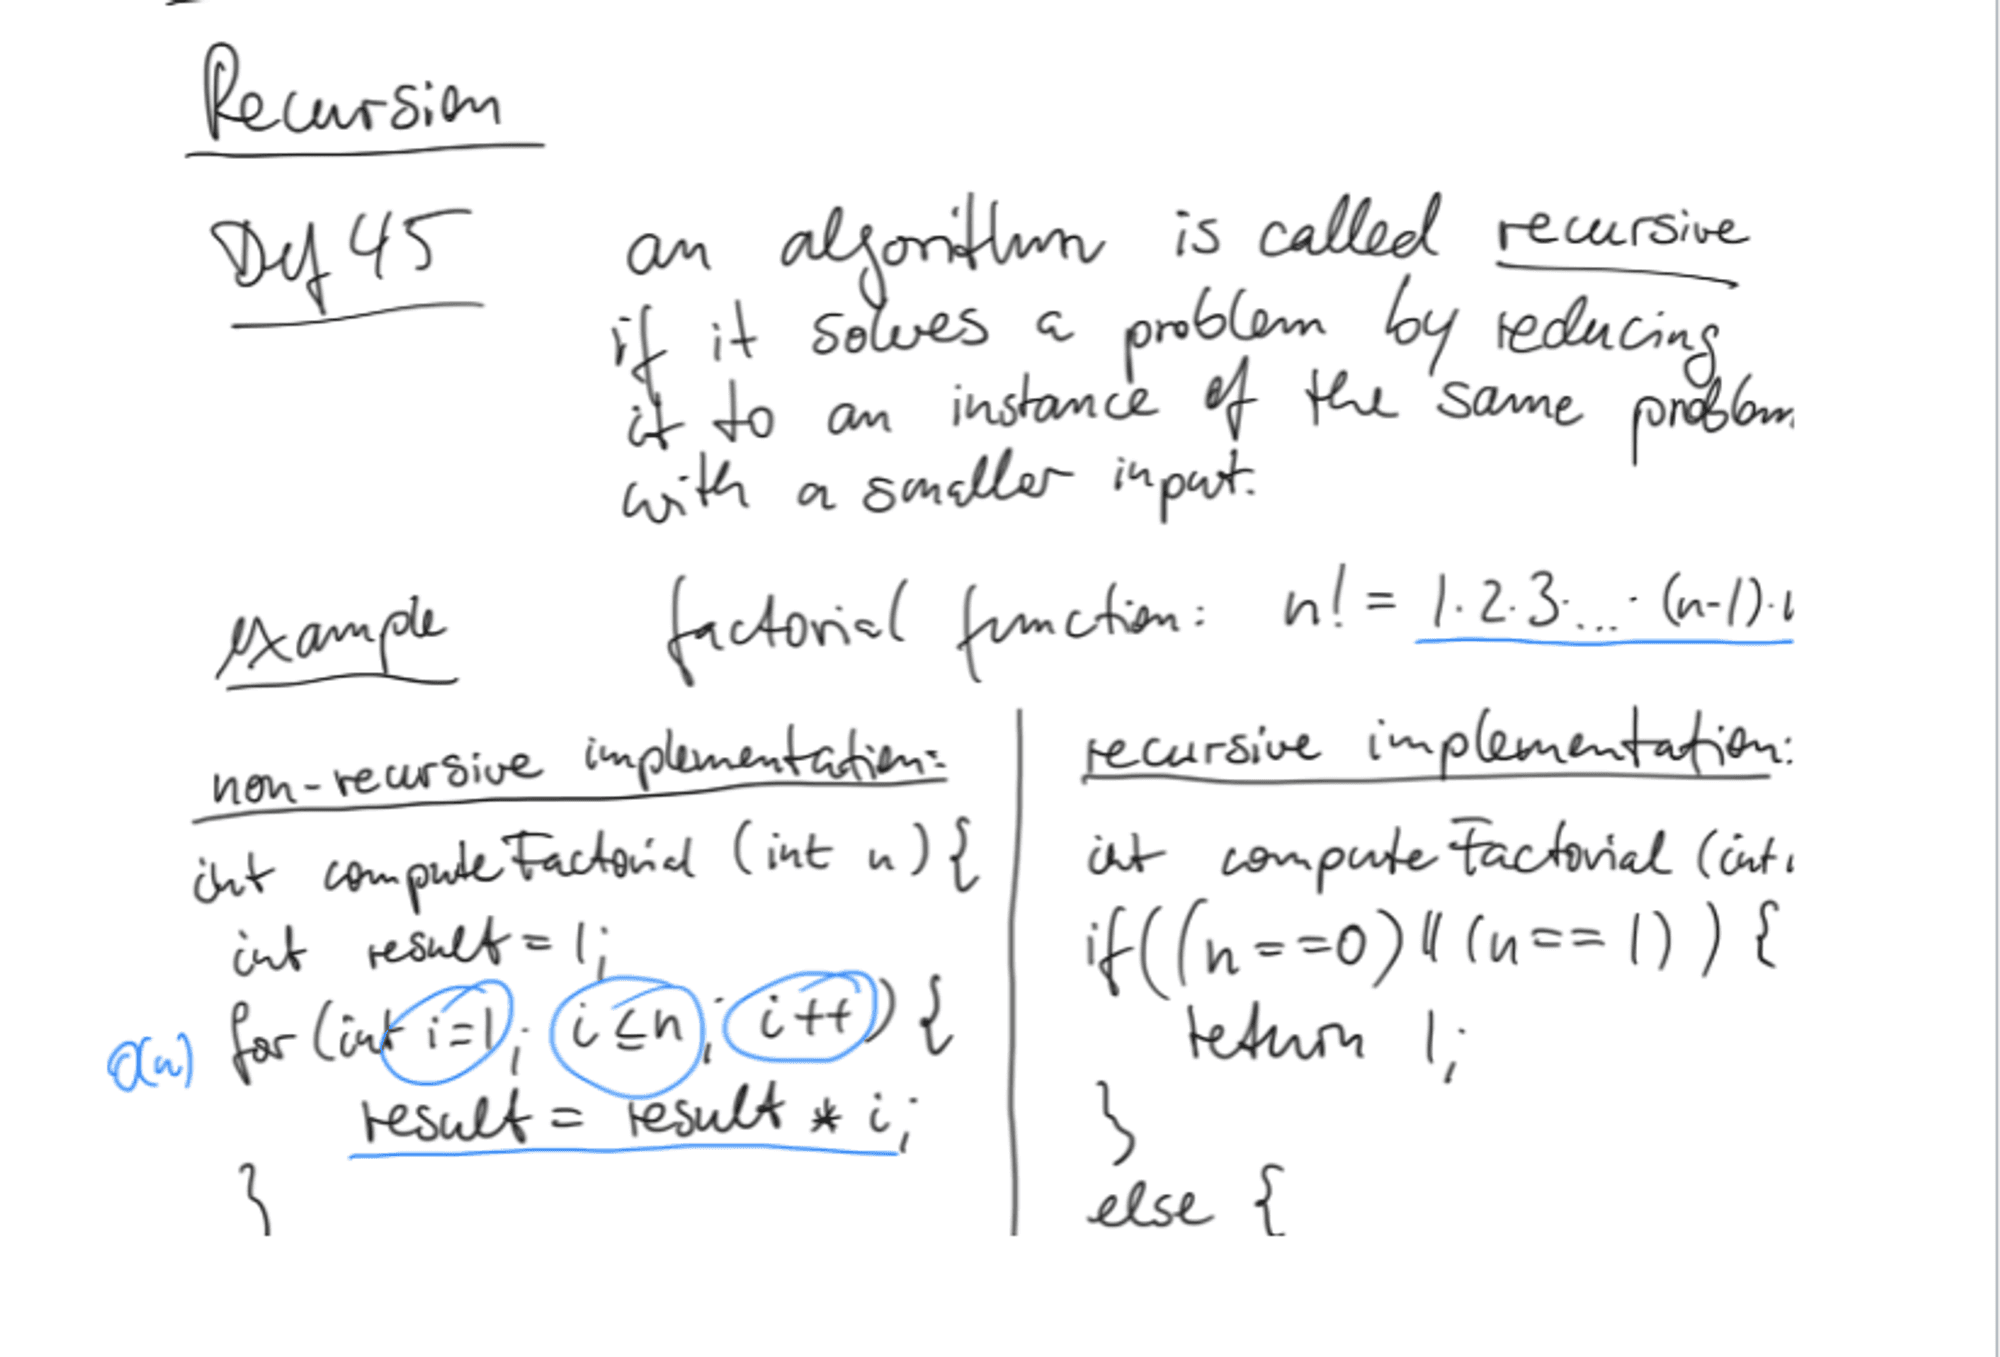 Recursion
Def 45 an algorithm is called recursive
if it solves a problem by reducing
it to an instance of the same problem
with a smaller input.
example factorial function: n! = 1·2·3·...·(n-1)·
non-recursive implementation:
int computeFactorial (int n) {
int result = 1;
O(n) for (int i=1; i≤n; i++) {
result = result * i;
}
recursive implementation:
int computeFactorial (int
if((n==0) || (n==1)) {
return 1;
}
else {